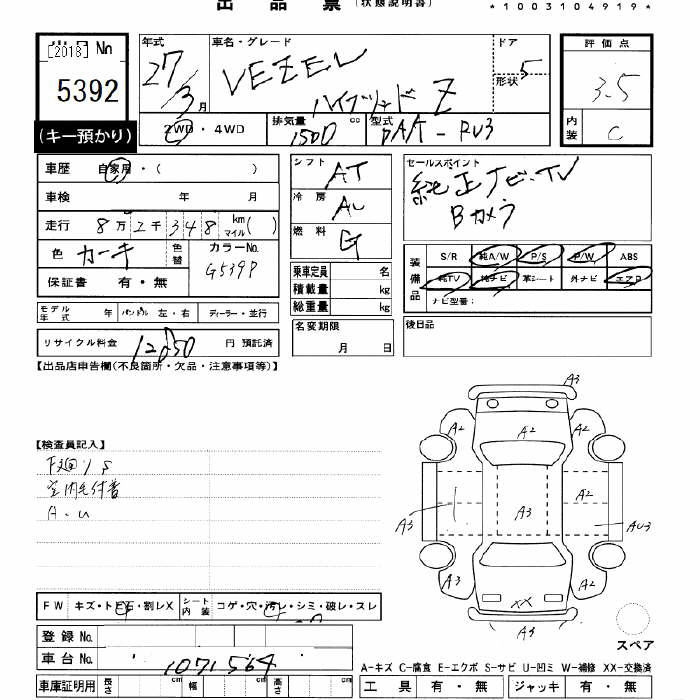 出品票(状態説明書)
*1003104919*
[2018] No
5392
(キー預かり)
年式 車名・グレード ドア
27 VEZEL 5
3月 ハイブリッド Z 形状
2WD・4WD 排気量 1500 cc 型式 DAA-RU3
評価点
3.5
内装 C
車歴 自家用・( )
車検 年 月
走行 8万2千348 km マイル( )
色 色替 カラーNo.
G539P
保証書 有・無
シフト AT
冷房
燃料 G
乗車定員 名
積載量 kg
総重量 kg
セールスポイント
純正ナビ・TV
Bカメラ
装備品
S/R 純A/W P/S P/W ABS
純TV 純ナビ 革シート 外ナビ エアB
ナビ型番:
モデル年式 年 ハンドル 左・右 ディーラー・並行
リサイクル料金 円 預託済
名変期限 月 日
後日品
【出品店申告欄(不良箇所・欠品・注意事項等)】
【検査員記入】
下回りS
A・U
FW キズ・トビ石・割レX シート内装 コゲ・穴・汚レ・シミ・破レ・スレ
登録No.
車台No. 1071564
車庫証明用 長さ cm 幅 cm 高さ cm
A3
A2 A2 A2
A2
A3 A3 AU3
A3 A2
XX
A3
スペア
A-キズ C-腐食 E-エクボ S-サビ U-凹ミ W-補修 XX-交換済
工具 有・無 ジャッキ 有・無